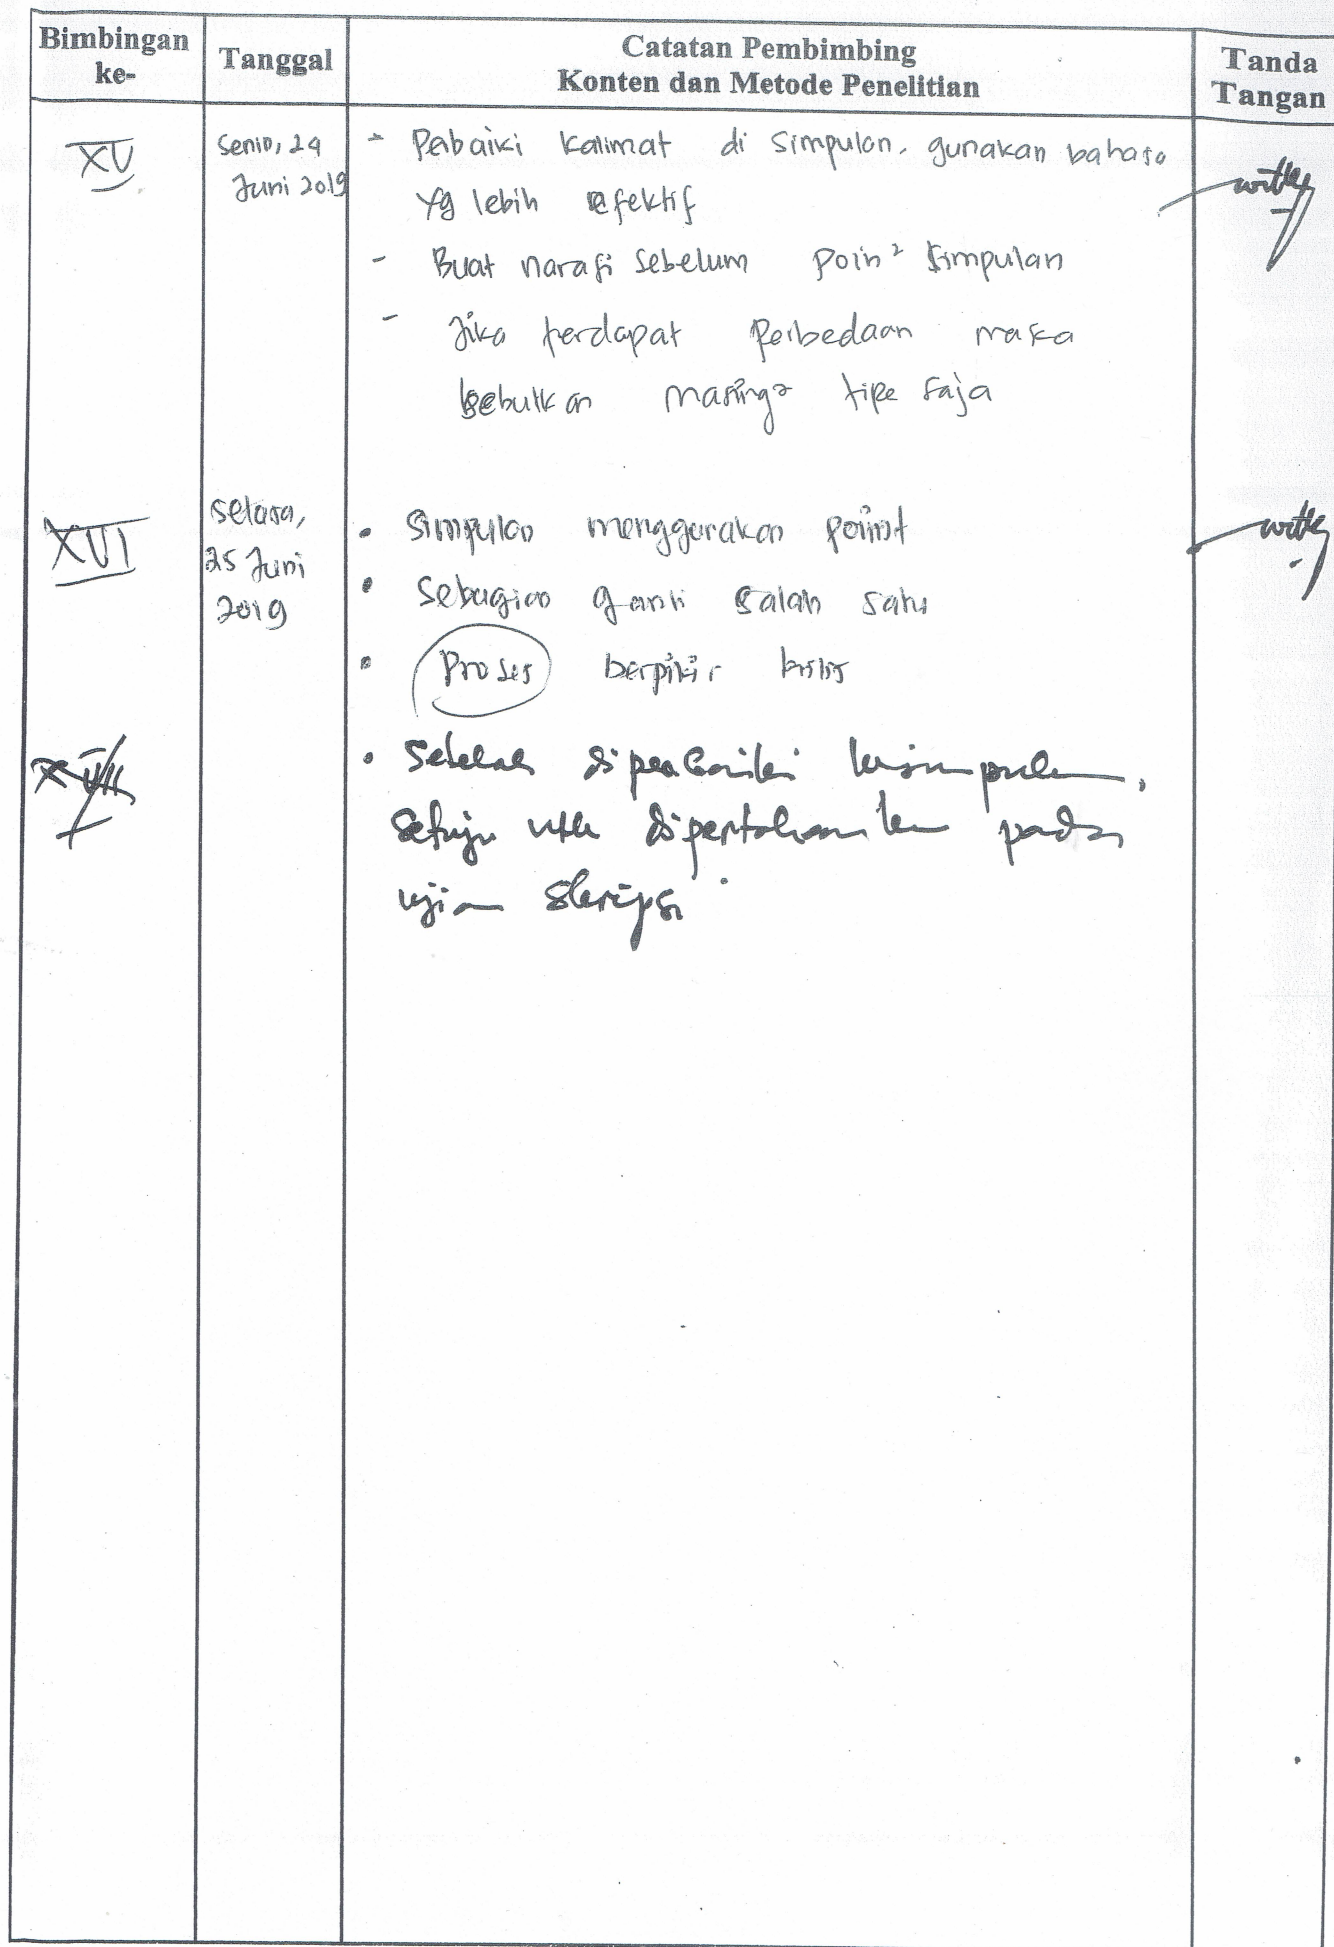 Bimbingan ke-
Tanggal
Catatan Pembimbing
Konten dan Metode Penelitian
Tanda Tangan
XV
Senin, 24
Juni 2019
- Pebaiki kalimat di simpulan, gunakan bahasa
yg lebih efektif
- Buat narasi sebelum poin² simpulan
- Jika terdapat perbedaan maka
sebutkan masing² tipe saja
XVI
Selasa,
25 Juni
2019
• Simpulan menggunakan point
• Sebagian ganti salah satu
• Proses berpikir kritis
• Setelah diperbaiki kesimpulan,
setuju utk dipertahankan pada
ujian skripsi.